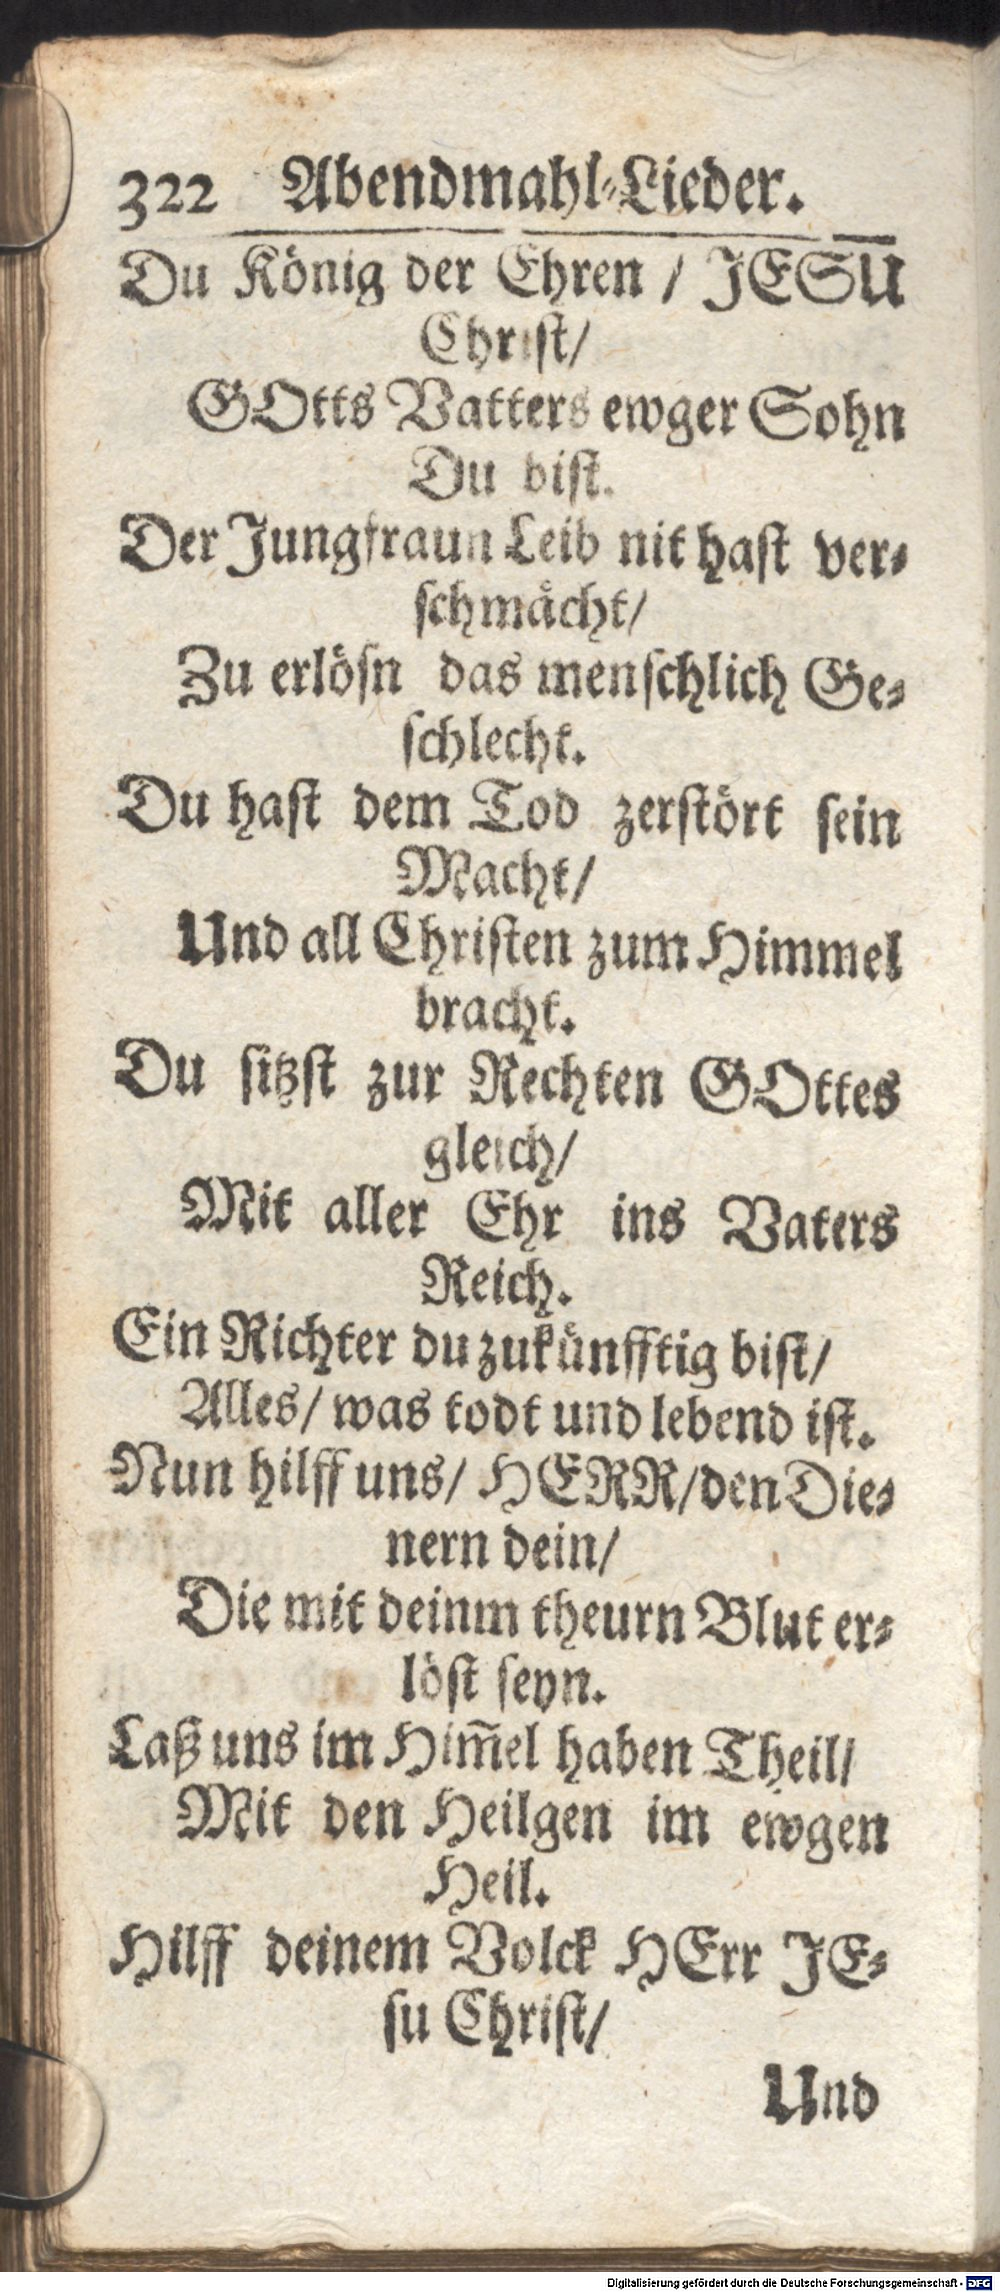 322 Abendmahl-Lieder.
Du König der Ehren / JESU
Christ/
GOtts Vatters ewger Sohn
Du bist.
Der Jungfraun Leib nit hast ver-
schmächt/
Zu erlösn das menschlich Ge-
schlecht.
Du hast dem Tod zerstört sein
Macht/
Und all Christen zum Himmel
bracht.
Du sitzst zur Rechten GOttes
gleich/
Mit aller Ehr ins Vaters
Reich.
Ein Richter du zukünfftig bist/
Alles/ was todt und lebend ist.
Nun hilff uns/ HERR/den Die-
nern dein/
Die mit deinm theurn Blut er-
löst seyn.
Laß uns im Him̃el haben Theil/
Mit den Heilgen im ewgen
Heil.
Hilff deinem Volck HErr JE-
su Christ/
Und
Digitalisierung gefördert durch die Deutsche Forschungsgemeinschaft - DFG